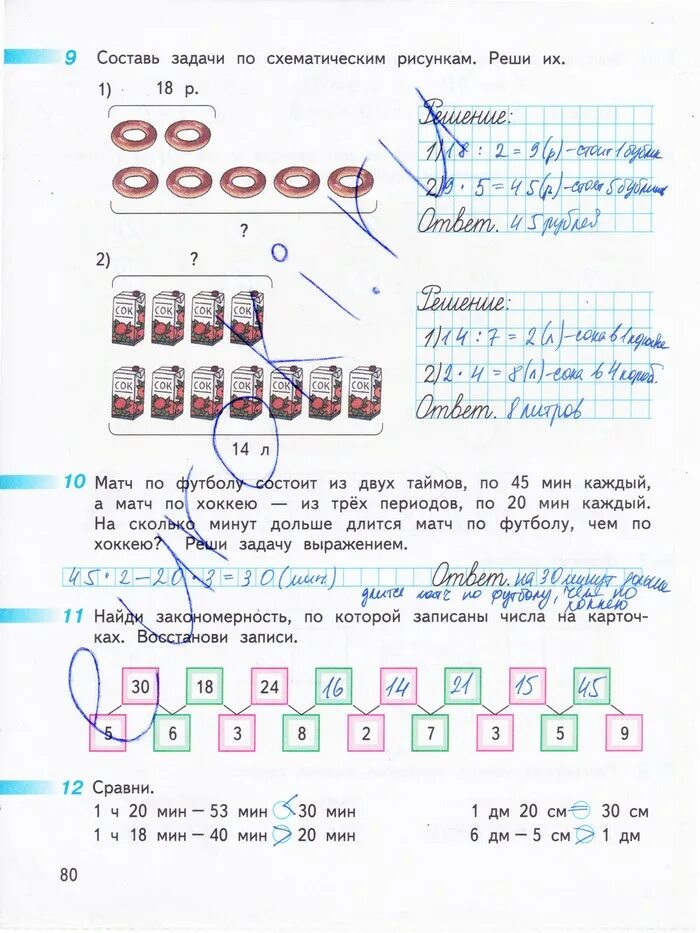 9 Составь задачи по схематическим рисункам. Реши их.
1) 18 р.
Решение:
1) 18 : 2 = 9 (р) – стоит 1 бублик
2) 9 · 5 = 45 (р) – стоят 5 бубликов
Ответ. 45 рублей
?
2) ?
СОК СОК СОК СОК
СОК СОК СОК СОК СОК СОК СОК
14 л
Решение:
1) 14 : 7 = 2 (л) – сока в 1 коробке
2) 2 · 4 = 8 (л) – сока в 4 короб.
Ответ. 8 литров
10 Матч по футболу состоит из двух таймов, по 45 мин каждый,
а матч по хоккею — из трёх периодов, по 20 мин каждый.
На сколько минут дольше длится матч по футболу, чем по
хоккею? Реши задачу выражением.
45 · 2 – 20 · 3 = 30 (мин.) Ответ. на 30 минут дольше
длится матч по футболу, чем по
хоккею
11 Найди закономерность, по которой записаны числа на карточ-
ках. Восстанови записи.
30 18 24 16 14 21 15 45
5 6 3 8 2 7 3 5 9
12 Сравни.
1 ч 20 мин – 53 мин < 30 мин 1 дм 20 см = 30 см
1 ч 18 мин – 40 мин > 20 мин 6 дм – 5 см > 1 дм
80
еуроки.ru